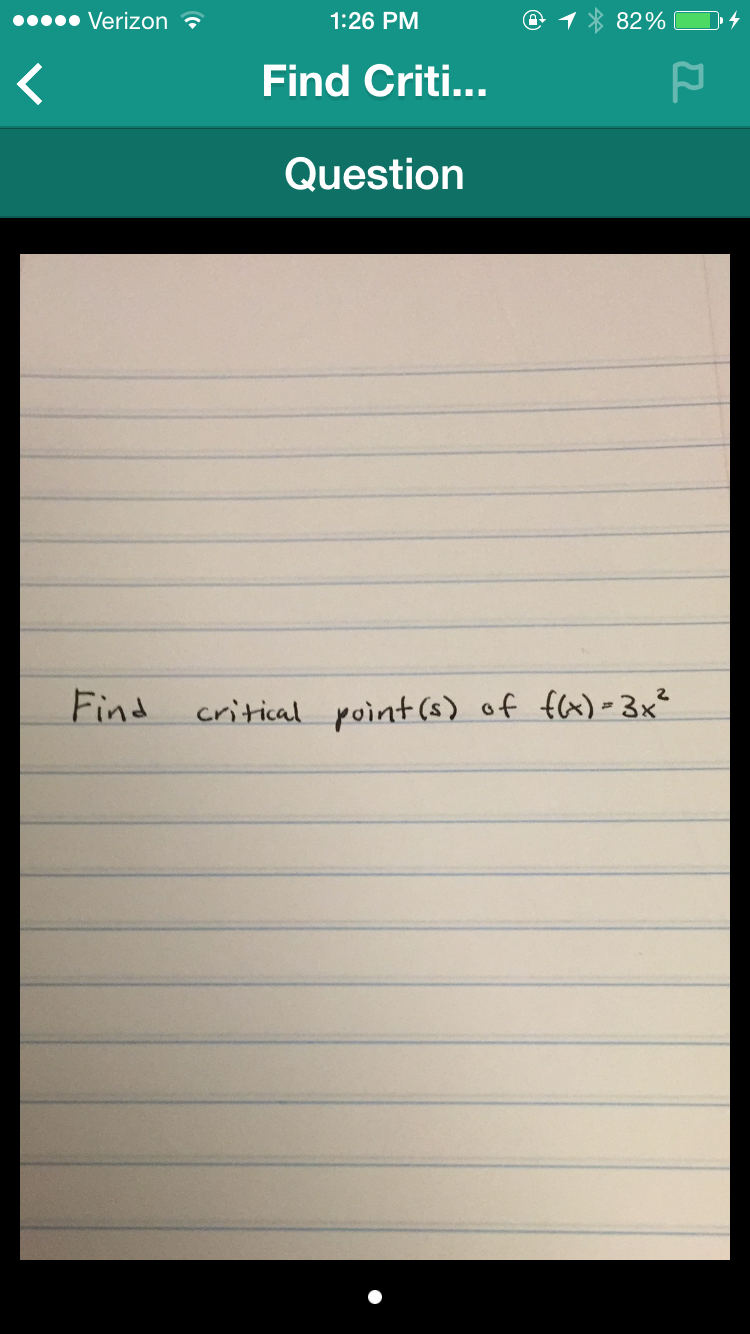 Verizon 1:26 PM 82%
Find Criti...
Question
Find critical point(s) of f(x) = 3x²